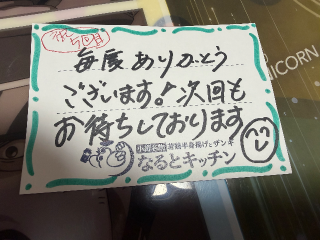 祝5回目
毎度ありがとう
ございます!次回も
お待ちしております
小樽名物 若鶏半身揚げとザンギ
なるとキッチン
UNICORN